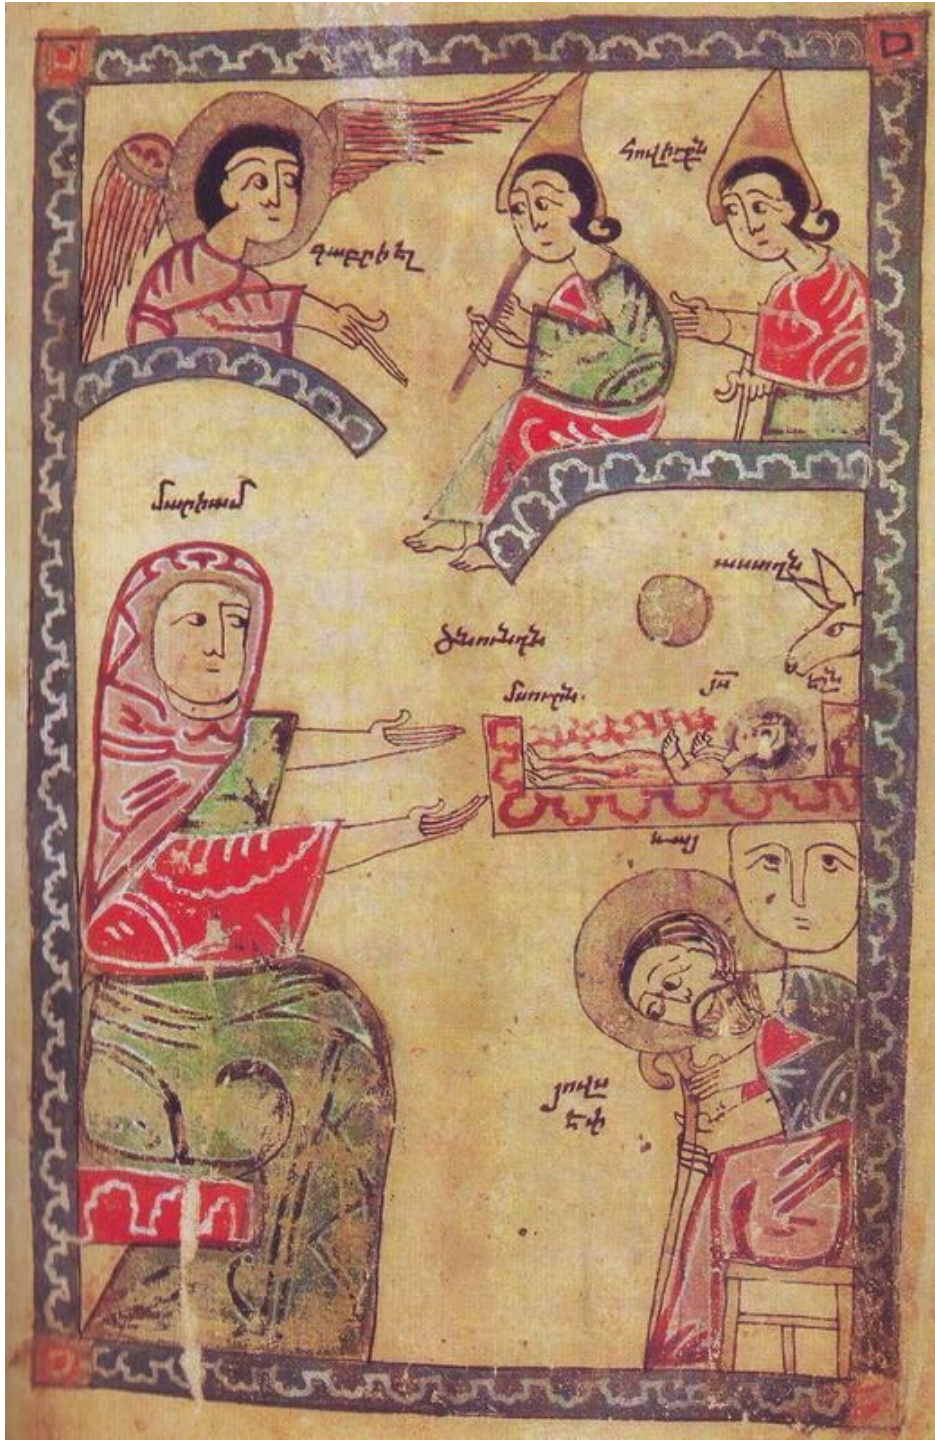 հովիւքն
գաբրիէլ
մարիամ
աստղն
ծնունդն
մսուրն.
յս
էշն
յովս
էփ